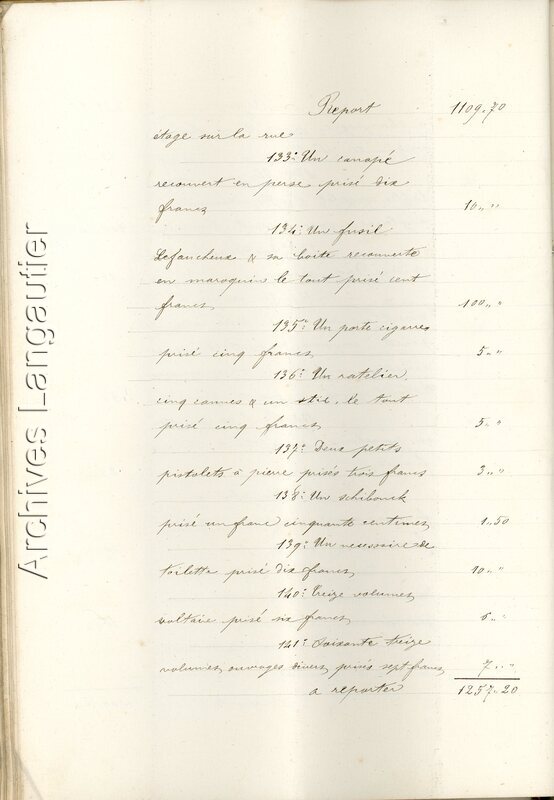 Report 1109.70
étage sur la rue
133° Un canapé
recouvert en perse prisé dix
francs 10 " "
134° Un fusil
Lefaucheux & sa boîte recouverte
en maroquin le tout prisé cent
francs 100 " "
135° Un porte cigares
prisé cinq francs 5 " "
136° Un ratelier
cinq cannes & un stic, le tout
prisé cinq francs 5 " "
137° Deux petits
pistolets à pierre prisés trois francs 3 " "
138° Un schibouck
prisé un franc cinquante centimes 1.50
139° Un necessaire de
toilette prisé dix francs 10 " "
140° Treize volumes
voltaire prisé six francs 6 " "
141° Soixante treize
volumes, ouvrages divers, prisés sept francs 7 " "
a reporter 1257.20
Archives Langautier